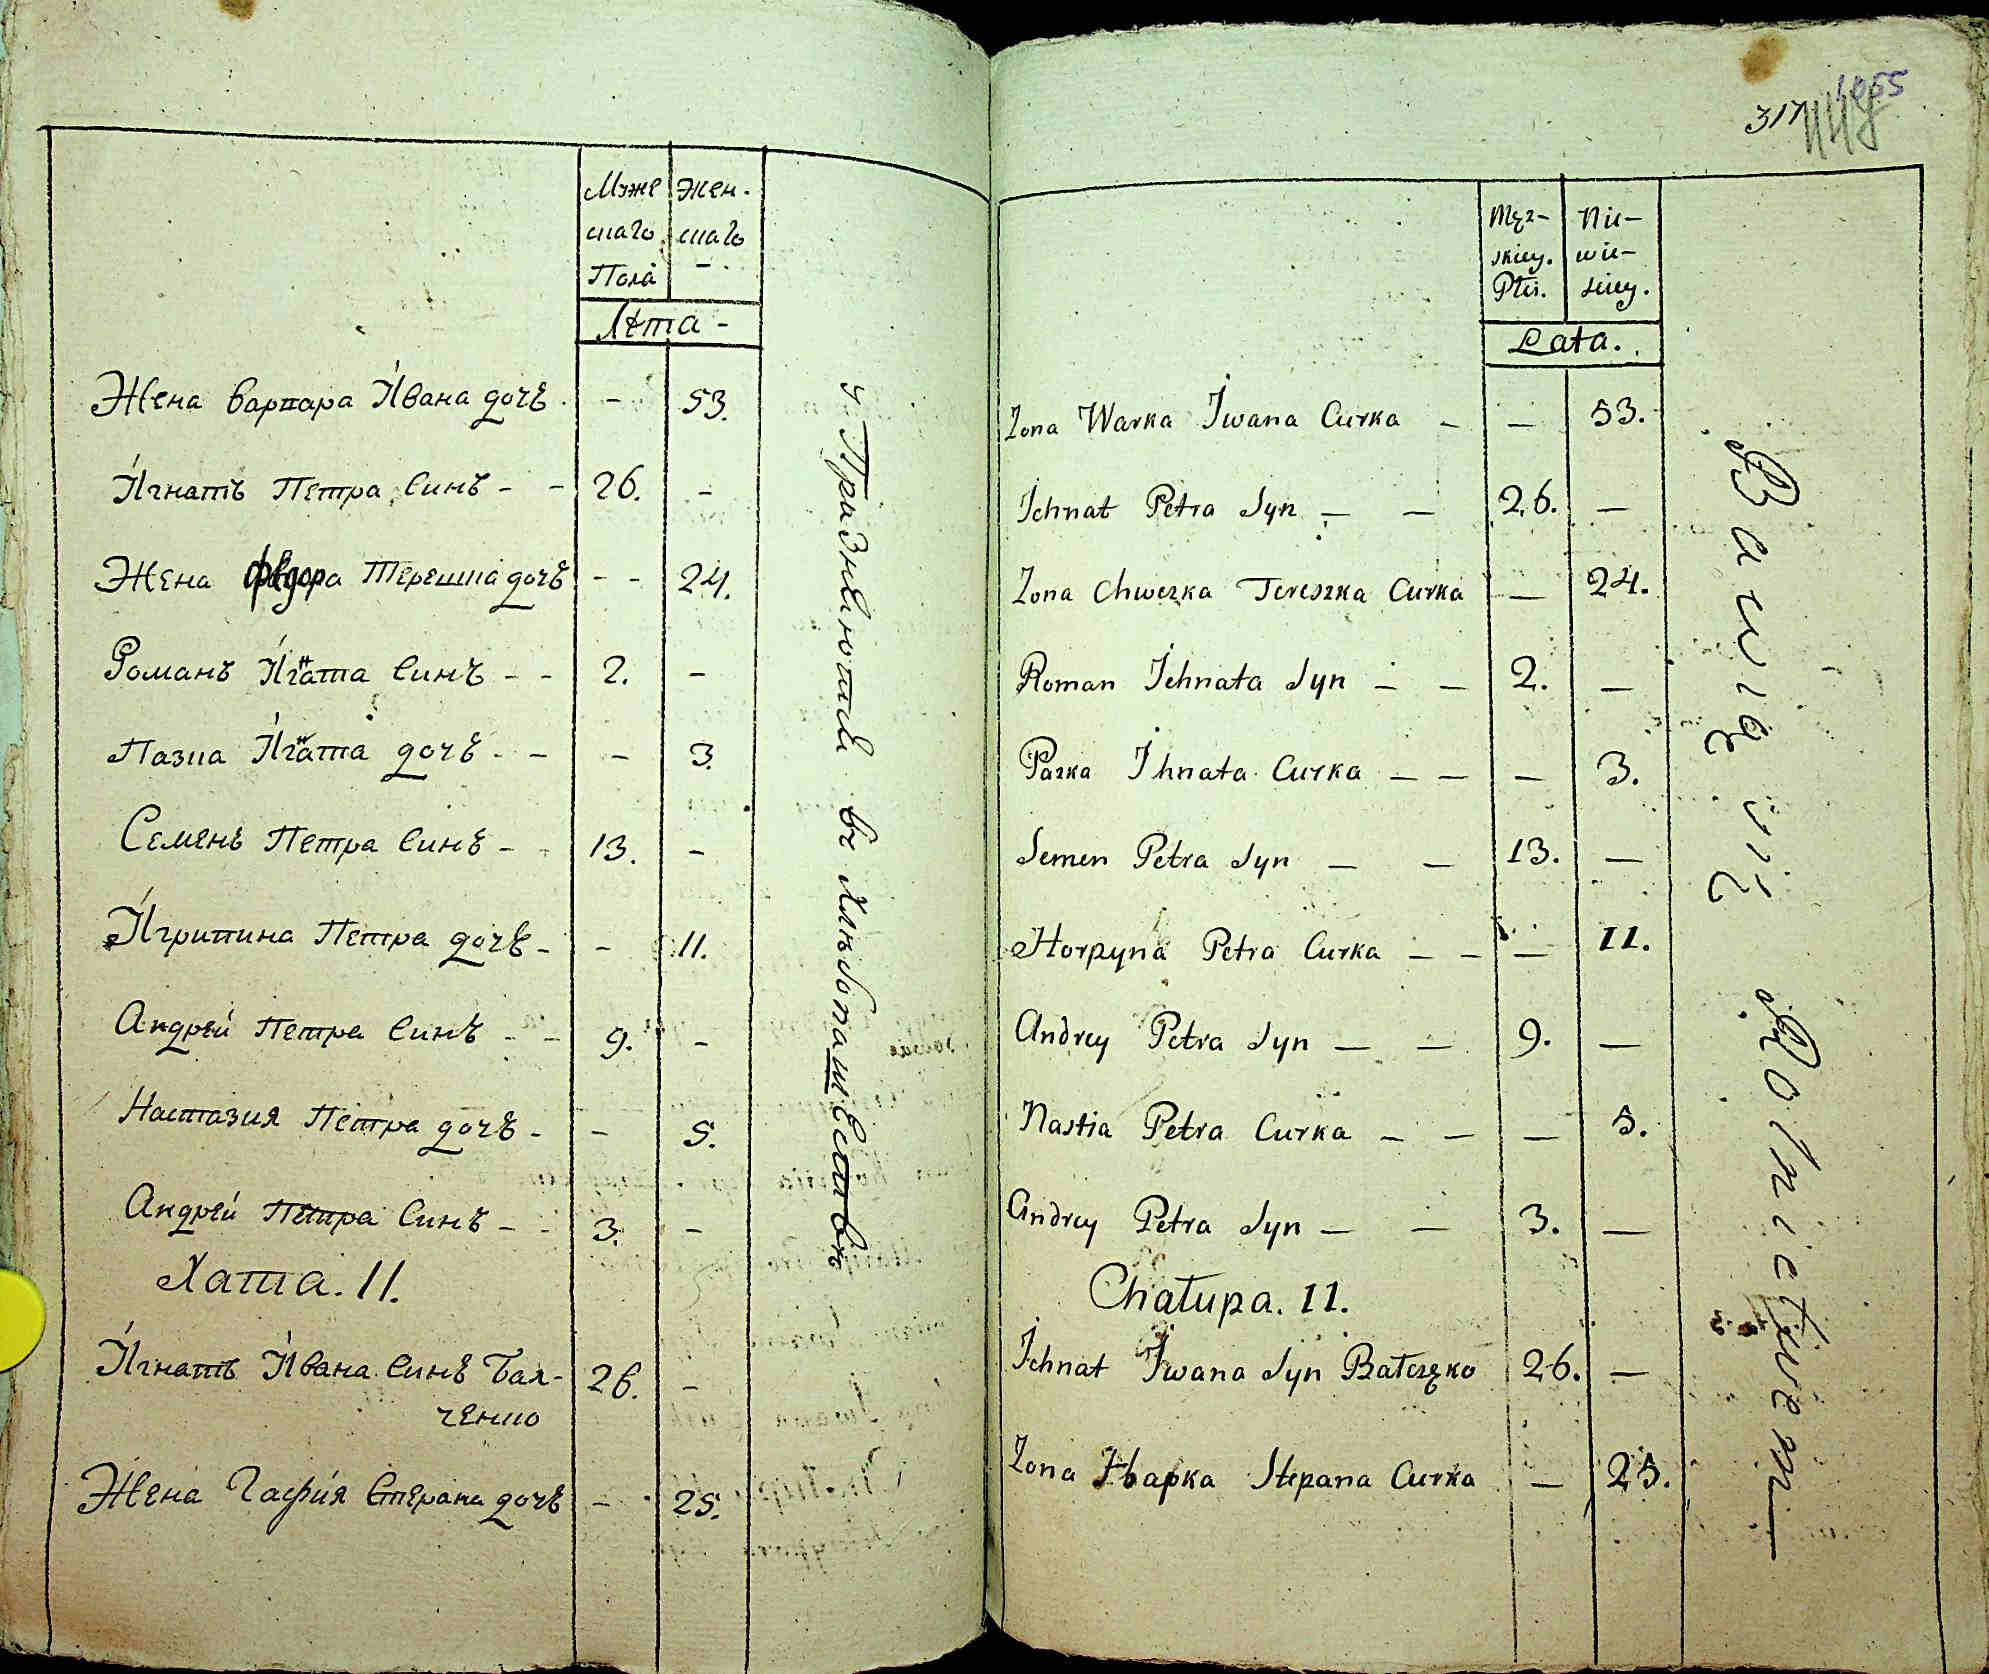 Муже Жен-
скаго скаго
Пола -
Лѣта -
Жена варвара Ивана дочь - 53.
Игнатъ Петра Синъ - - 26. -
Жена федора Терешка дочь - - 24.
Романъ Игната Синъ - - 2. -
Пазка Игната дочь - - - 3.
Семенъ Петра Синъ - - 13. -
Игрипина Петра дочь - - 11.
Андрей Петра Синъ - - 9. -
Настазия Петра дочь - - 5.
Андрей Петра Синъ - - 3. -
Хата. 11.
Игнатъ Ивана Синъ Бал- 26. -
ченко
Жена Гафия Степана дочь - 25.
Упражняются въ хлѣбопашествѣ
317
1055
Męz- Nie-
skiey. wie-
Płci. sciey.
Lata.
Zona Warka Iwana Curka - - 53.
Ichnat Petra Syn - - 26. -
Zona Chweszka Tereszka Curka - 24.
Roman Ichnata Syn - - 2. -
Pazka Ihnata Curka - - - 3.
Semen Petra Syn - - 13. -
Horpyna Petra Curka - - - 11.
Andrey Petra Syn - - 9. -
Nastia Petra Curka - - - 5.
Andrey Petra Syn - - 3. -
Chałupa. 11.
Ichnat Iwana Syn Bałczęko 26. -
Zona Hapka Stepana Curka - 25.
Bawią się Rolnictwem